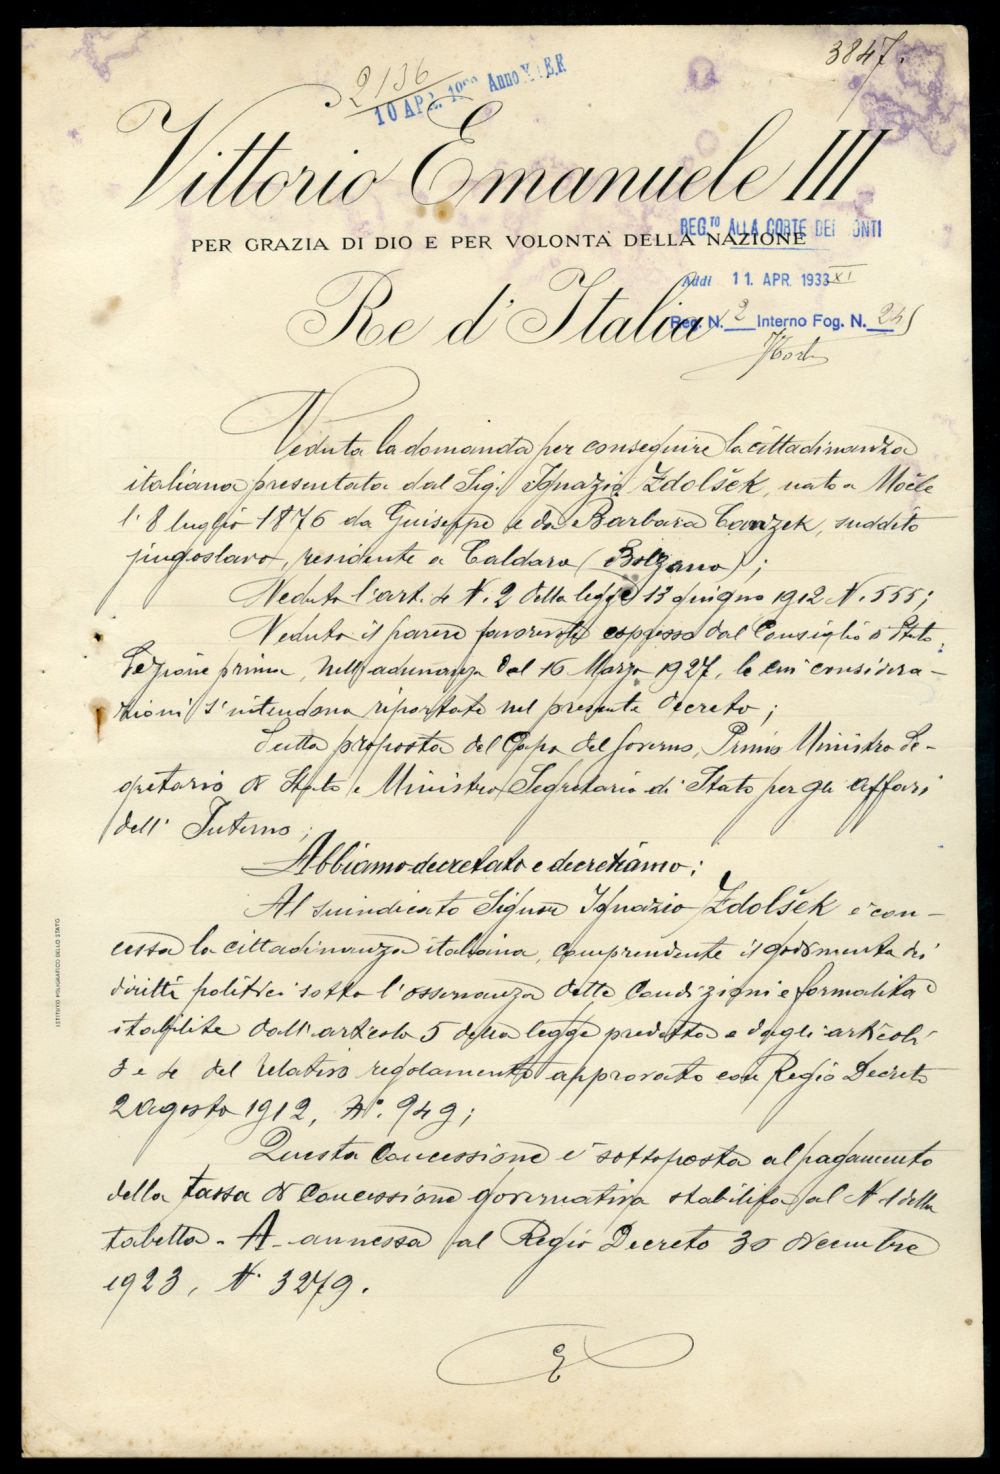 3847.
2136
10 APR. 1933 Anno XI E.F.
Vittorio Emanuele III
PER GRAZIA DI DIO E PER VOLONTÀ DELLA NAZIONE
REG.TO ALLA CORTE DEI CONTI
Addì 11. APR. 1933 XI
Re d'Italia
Reg. N. 2 Interno Fog. N.
Veduta la domanda per conseguire la cittadinanza
italiana presentata dal Sig. Ignazio Zdolšek, nato a
l'8 luglio 1876 da Guiseppe e da Barbara, suddito
jugoslavo, residente a Caldaro (Bolzano);
Veduto l'art. 4 N. 2 della legge 13 giugno 1912 N. 555;
Veduto il parere favorevole espresso dal Consiglio di Stato
Sezione prima, nell'adunanza del 16 Marzo 1927, le cui considera-
zioni s'intendono riportate nel presente decreto;
Sulla proposta del Capo del Governo, Primo Ministro Se-
gretario di Stato e Ministro Segretario di Stato per gli affari
dell'Interno;
Abbiamo decretato e decretiamo:
Al suindicato Signor Ignazio Zdolšek è con-
cessa la cittadinanza italiana, comprendente il godimento dei
diritti politici sotto l'osservanza delle condizioni e formalità
stabilite dall'articolo 5 della legge predetta e dagli articoli
3 e 4 del relativo regolamento approvato con Regio Decreto
2 agosto 1912, N°. 949;
Questa concessione è sottoposta al pagamento
della tassa di concessione governativa stabilita al N. 1 della
tabella - A - annessa al Regio Decreto 30 dicembre
1923, N. 3279.
ISTITUTO POLIGRAFICO DELLO STATO